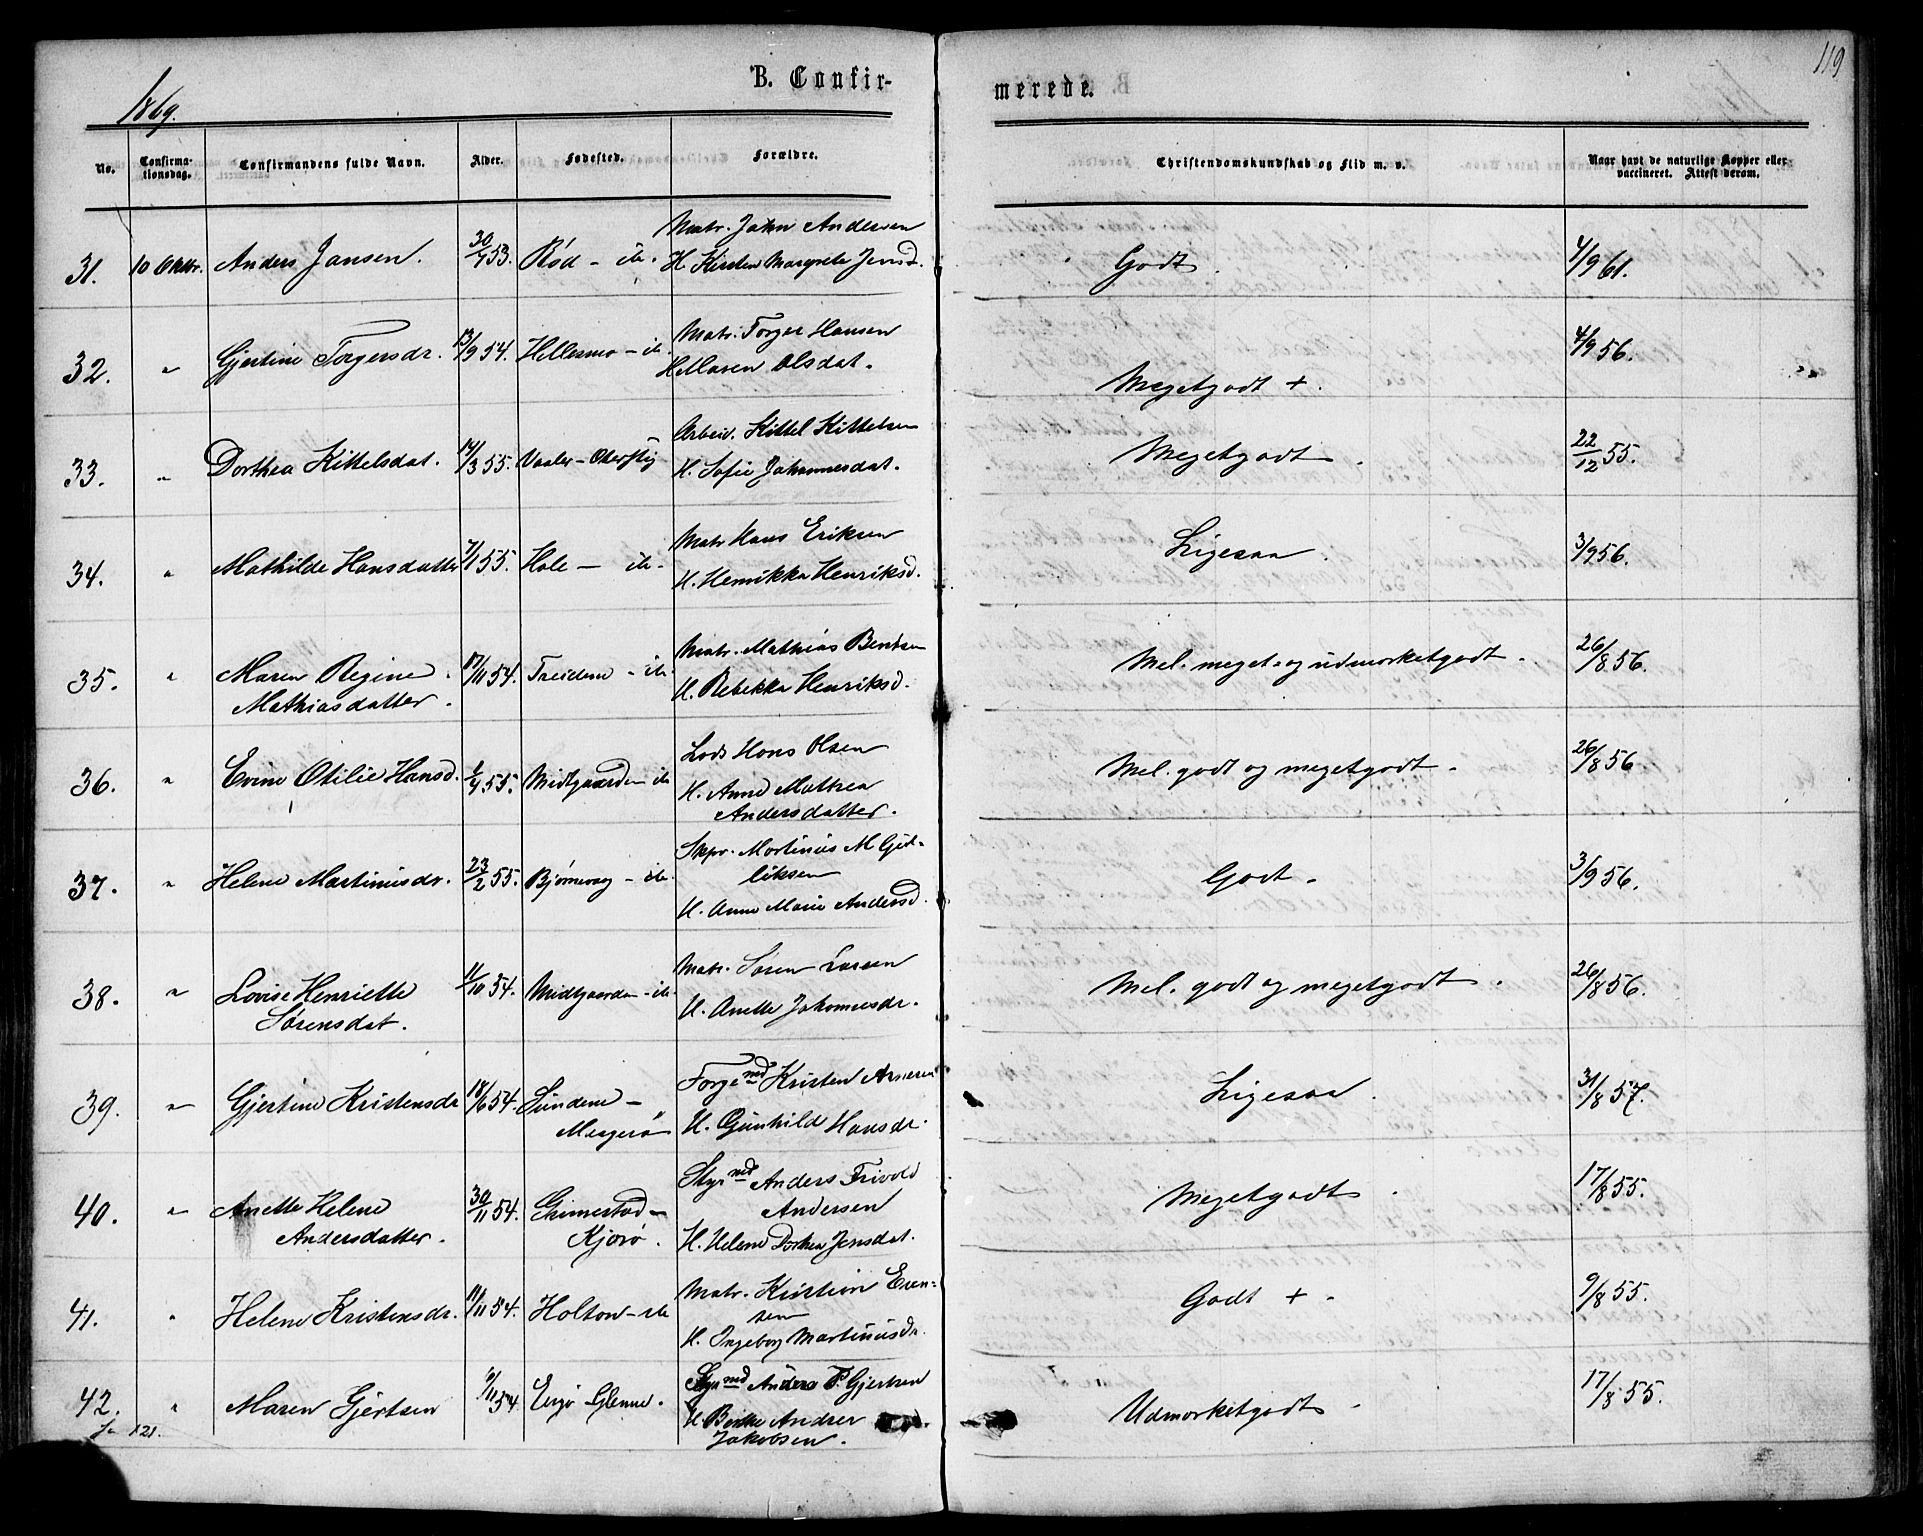 119
1869.
B. Confir-
merede.
No.
Confirma-
tionsdag.
Confirmandens fulde Navn.
Alder.
Fødested.
Forældre.
Christendomskundskab og Flid m. v.
Naar havt de naturlige Kopper eller
vaccineret. Attest derom.
31. 10 Oktbr. Anders Jansen. 30/7 53. Rød - ib. Matr. John Andersen
H. Kirsten Margrete Jensd. Godt. 4/9 61.
32. " Gjertine Torgersdr. 13/9 54. Hellesmo - ib. Matr. Torger Hansen
H. Maren Olsdat. Megetgodt +. 4/9 56.
33. " Dorthea Kittelsdat. 14/3 55. Vaaler - Arbeid. Kittel Kittelsen
H. Sofie Johannesdat. Megetgodt. 22/12 55.
34. " Mathilde Hansdatter 7/1 55. Hole - ib. Matr Hans Eriksen
H. Henrikka Henriksd. Ligesaa. 3/9 56.
35. " Maren Regine 17/11 54. Treidene - ib. Matr. Mathias Bentsen
Mathiasdatter. H. Rebekka Henriksd. Mel. meget- og udmærketgodt. 26/8 56.
36. " Evine Otilie Hansd. 2/4 55. Midtgaarden ib Lods Hans Olsen
H. Anne Mathea
Andersdatter. Mel. godt og megetgodt. 26/8 56
37. " Helene Martinusdr. 23/2 55. Bjørnevaag - ib. Skpr. Martinus M Gud-
liksen
H. Anne Marie Andersd. Godt. 3/9 56.
38. " Lovise Henriette 11/10 54. Midtgaarden - ib. Matr. Søren Larsen
Sørensdat. H. Anette Johannesdr. Mel. godt og megetgodt. 26/8 56.
39. " Gjertine Kristensdr 18/6 54. Sundene - Kristen
Mågerø H. Gunhild Hansdr. Ligesaa. 31/8 57.
40. " Anette Helene 30/11 54. Grimestad - Styrmd Anders Trivold
Andersdatter. Kjørø. Andersen
H. Helene Dorthea Jensdat. Megetgodt. 17/8 55.
41. " Helene Kristensdr. 11/11 54. Holtan - ib Matr. Kristian Even-
sen
H. Ingeborg Martinusdr. Godt +. 9/8 55.
42. " Maren Gjertsen 9/11 54 Glenne. Styrmd Anders P. Gjertsen
H. Andrea
Jakobsen. Udmærketgodt. 17/8 55.
121.